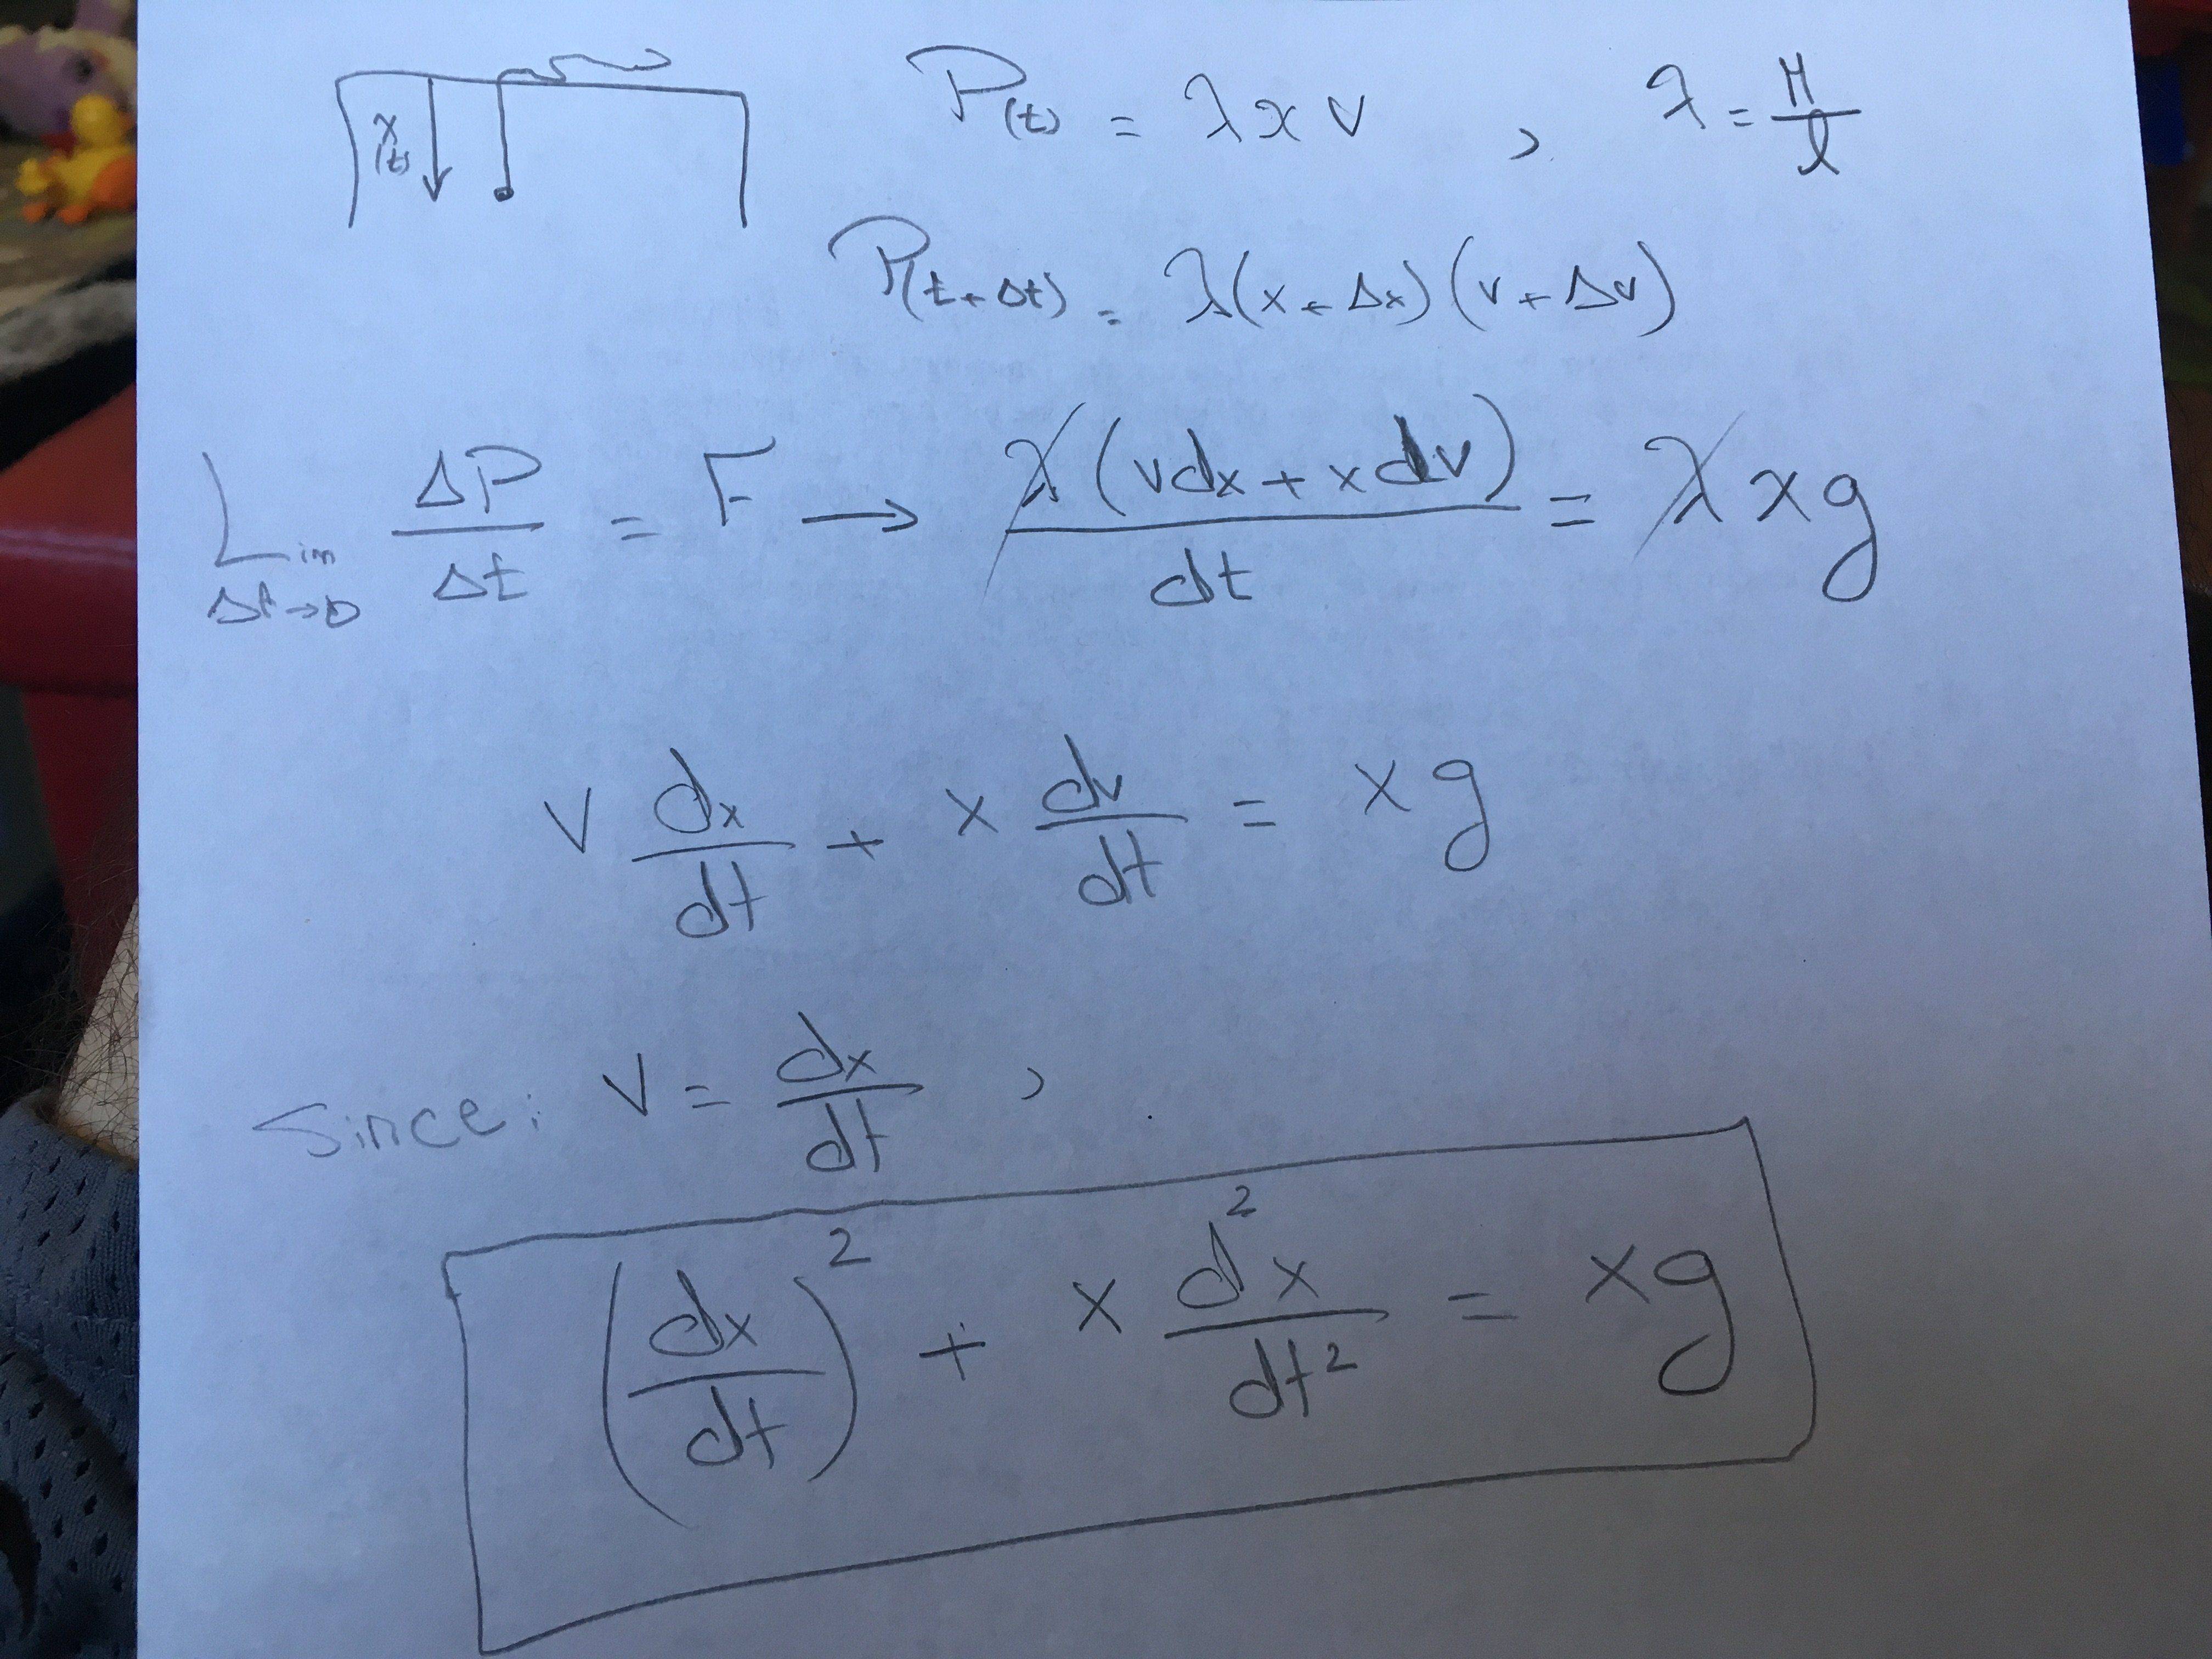 P(t) = λ x v , λ = M/l
x(t)
P(t+Δt) = λ(x+Δx)(v+Δv)
Lim Δt→0 ΔP/Δt = F → λ(vdx + xdv)/dt = λxg
v dx/dt + x dv/dt = xg
Since: v = dx/dt ,
(dx/dt)² + x d²x/dt² = xg